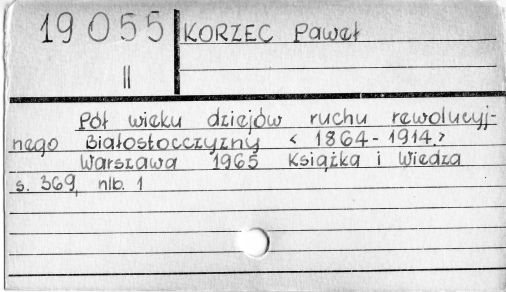 19 055
II
KORZEC Paweł
Pół wieku dziejów ruchu rewolucyj-
nego Białostocczyzny < 1864-1914.>
Warszawa 1965 Książka i Wiedza
s. 369, nlb. 1